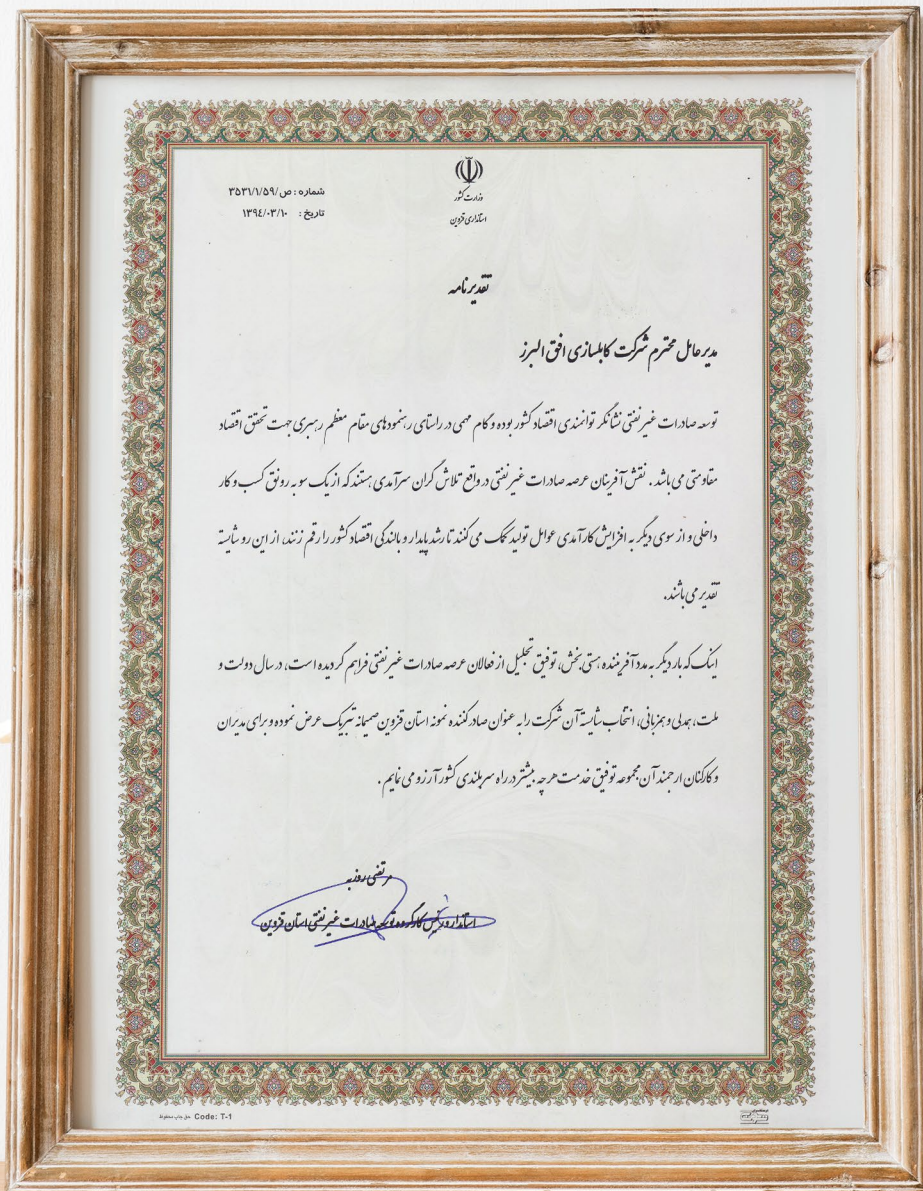 وزارت کشور
استانداری قزوین
شماره : ص/۳۵۳۱/۱/۵۹
تاریخ : ۱۳۹۴/۰۳/۱۰
تقدیرنامه
مدیرعامل محترم شرکت کابلسازی افق البرز
توسعه صادرات غیرنفتی نشانگر توانمندی اقتصاد کشور بوده و گام مهمی در راستای رهنمودهای مقام معظم رهبری جهت تحقق اقتصاد
مقاومتی می باشد . نقش آفرینان عرصه صادرات غیرنفتی در واقع تلاش گران سرآمدی هستند که از یک سو به رونق کسب و کار
داخلی و از سوی دیگر به افزایش کارآمدی عوامل تولید کمک می کنند تا رشد پایدار و بالندگی اقتصاد کشور را رقم زنند، از این رو شایسته
تقدیر می باشند.
اینک که بار دیگر به مدد آفریننده هستی بخش، توفیق تجلیل از فعالان عرصه صادرات غیرنفتی فراهم گردیده است، در سال دولت و
ملت، همدلی و همزبانی، انتخاب شایسته آن شرکت را به عنوان صادرکننده نمونه استان قزوین صمیمانه تبریک عرض نموده و برای مدیران
و کارکنان ارجمند آن مجموعه توفیق خدمت هر چه بیشتر در راه سربلندی کشور آرزو می نمایم .
مرتضی روزبه
استاندار و رئیس کارگروه توسعه صادرات غیرنفتی استان قزوین
Code: T-1 حق چاپ محفوظ